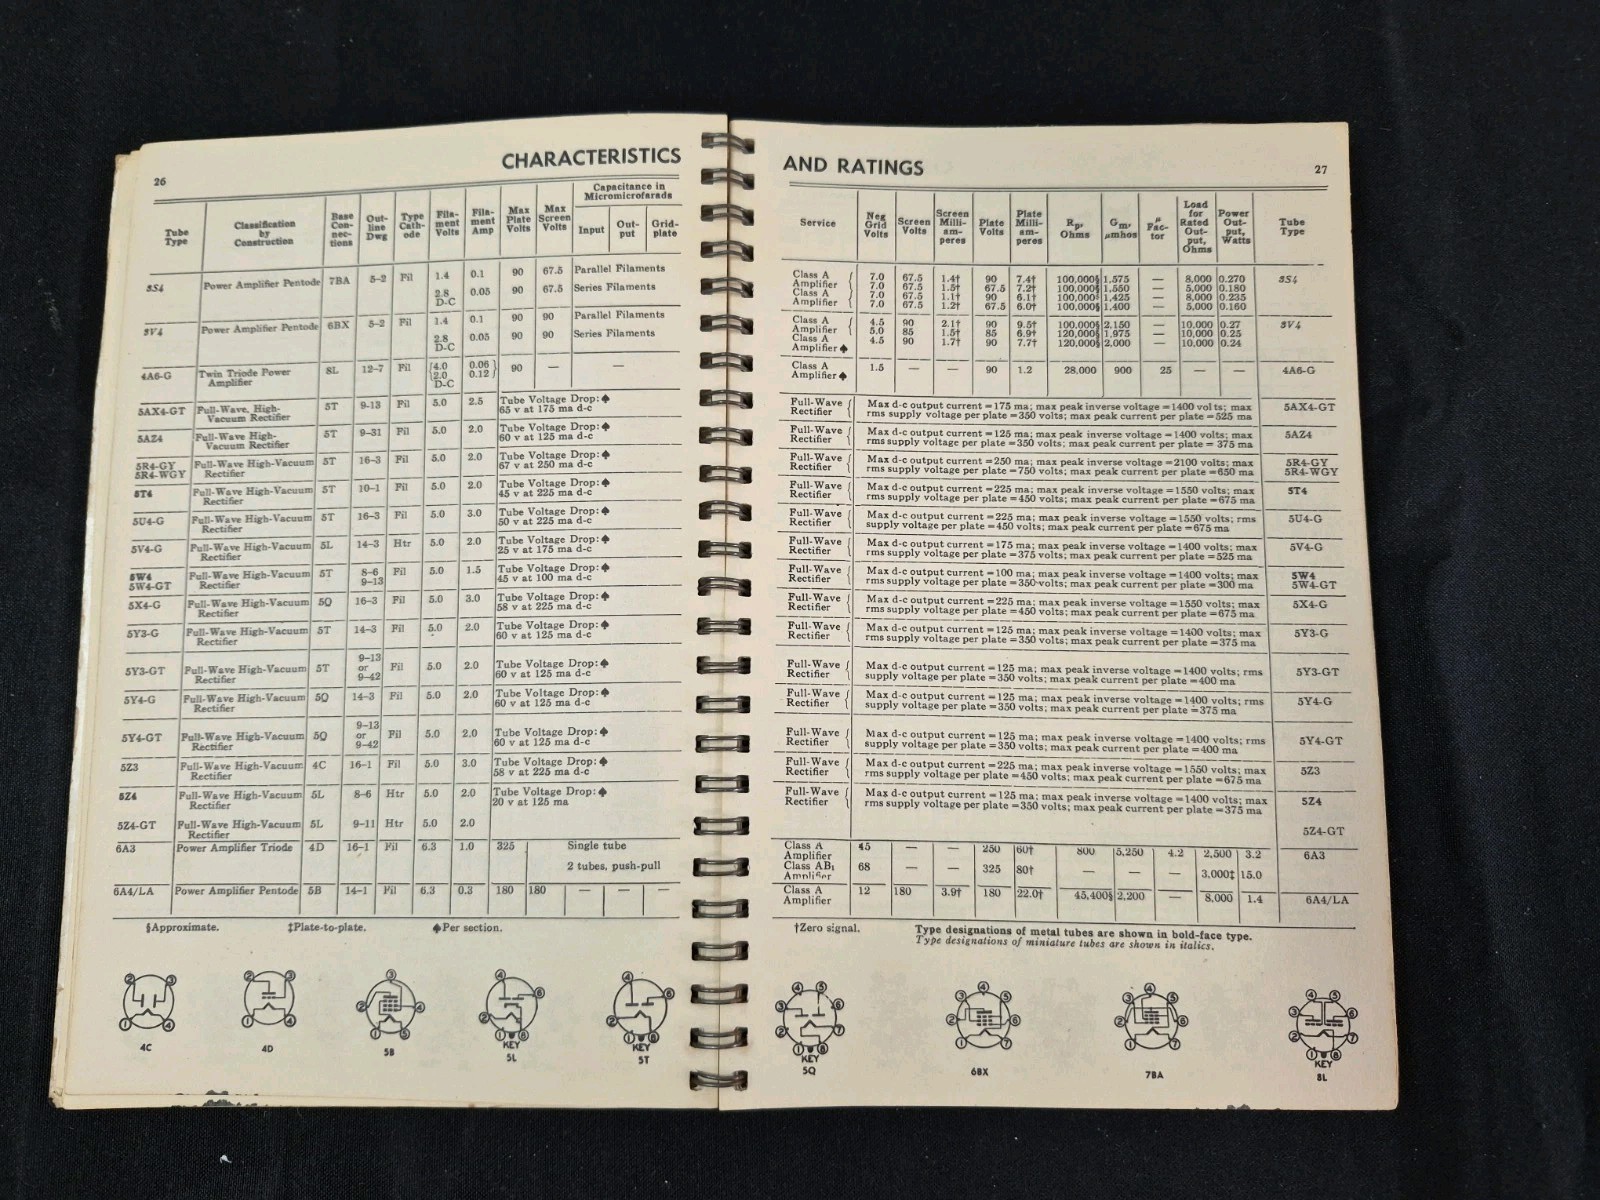 26
CHARACTERISTICS
Tube Type | Classification by Construction | Base Connections | Outline Dwg | Type Cathode | Filament Volts | Filament Amp | Max Plate Volts | Max Screen Volts | Capacitance in Micromicrofarads: Input | Output | Grid-plate
3S4 | Power Amplifier Pentode | 7BA | 5-2 | Fil | 1.4 | 0.1 | 90 | 67.5 | Parallel Filaments
2.8 D-C | 0.05 | 90 | 67.5 | Series Filaments
3V4 | Power Amplifier Pentode | 6BX | 5-2 | Fil | 1.4 | 0.1 | 90 | 90 | Parallel Filaments
2.8 D-C | 0.05 | 90 | 90 | Series Filaments
4A6-G | Twin Triode Power Amplifier | 8L | 12-7 | Fil | {4.0 {2.0 D-C | 0.06 } 0.12 } | 90 | — | —
5AX4-GT | Full-Wave, High-Vacuum Rectifier | 5T | 9-13 | Fil | 5.0 | 2.5 | Tube Voltage Drop:♠ 65 v at 175 ma d-c
5AZ4 | Full-Wave High-Vacuum Rectifier | 5T | 9-31 | Fil | 5.0 | 2.0 | Tube Voltage Drop:♠ 60 v at 125 ma d-c
5R4-GY 5R4-WGY | Full-Wave High-Vacuum Rectifier | 5T | 16-3 | Fil | 5.0 | 2.0 | Tube Voltage Drop:♠ 67 v at 250 ma d-c
5T4 | Full-Wave High-Vacuum Rectifier | 5T | 10-1 | Fil | 5.0 | 2.0 | Tube Voltage Drop:♠ 45 v at 225 ma d-c
5U4-G | Full-Wave High-Vacuum Rectifier | 5T | 16-3 | Fil | 5.0 | 3.0 | Tube Voltage Drop:♠ 50 v at 225 ma d-c
5V4-G | Full-Wave High-Vacuum Rectifier | 5L | 14-3 | Htr | 5.0 | 2.0 | Tube Voltage Drop:♠ 25 v at 175 ma d-c
5W4 5W4-GT | Full-Wave High-Vacuum Rectifier | 5T | 8-6 9-13 | Fil | 5.0 | 1.5 | Tube Voltage Drop:♠ 45 v at 100 ma d-c
5X4-G | Full-Wave High-Vacuum Rectifier | 5Q | 16-3 | Fil | 5.0 | 3.0 | Tube Voltage Drop:♠ 58 v at 225 ma d-c
5Y3-G | Full-Wave High-Vacuum Rectifier | 5T | 14-3 | Fil | 5.0 | 2.0 | Tube Voltage Drop:♠ 60 v at 125 ma d-c
5Y3-GT | Full-Wave High-Vacuum Rectifier | 5T | 9-13 or 9-42 | Fil | 5.0 | 2.0 | Tube Voltage Drop:♠ 60 v at 125 ma d-c
5Y4-G | Full-Wave High-Vacuum Rectifier | 5Q | 14-3 | Fil | 5.0 | 2.0 | Tube Voltage Drop:♠ 60 v at 125 ma d-c
5Y4-GT | Full-Wave High-Vacuum Rectifier | 5Q | 9-13 or 9-42 | Fil | 5.0 | 2.0 | Tube Voltage Drop:♠ 60 v at 125 ma d-c
5Z3 | Full-Wave High-Vacuum Rectifier | 4C | 16-1 | Fil | 5.0 | 3.0 | Tube Voltage Drop:♠ 58 v at 225 ma d-c
5Z4 | Full-Wave High-Vacuum Rectifier | 5L | 8-6 | Htr | 5.0 | 2.0 | Tube Voltage Drop:♠ 20 v at 125 ma
5Z4-GT | Full-Wave High-Vacuum Rectifier | 5L | 9-11 | Htr | 5.0 | 2.0
6A3 | Power Amplifier Triode | 4D | 16-1 | Fil | 6.3 | 1.0 | 325 | Single tube
2 tubes, push-pull
6A4/LA | Power Amplifier Pentode | 5B | 14-1 | Fil | 6.3 | 0.3 | 180 | 180 | — | — | —
§Approximate. ‡Plate-to-plate. ♠Per section.
4C 4D 5B KEY 5L KEY 5T
AND RATINGS
27
Service | Neg Grid Volts | Screen Volts | Screen Milliamperes | Plate Volts | Plate Milliamperes | Rp, Ohms | Gm, μmhos | μ Factor | Load for Rated Output, Ohms | Power Output, Watts | Tube Type
Class A | 7.0 | 67.5 | 1.4† | 90 | 7.4† | 100,000§ | 1,575 | — | 8,000 | 0.270 | 3S4
Amplifier | 7.0 | 67.5 | 1.5† | 67.5 | 7.2† | 100,000§ | 1,550 | — | 5,000 | 0.180
Class A | 7.0 | 67.5 | 1.1† | 90 | 6.1† | 100,000§ | 1,425 | — | 8,000 | 0.235
Amplifier | 7.0 | 67.5 | 1.2† | 67.5 | 6.0† | 100,000§ | 1,400 | — | 5,000 | 0.160
Class A | 4.5 | 90 | 2.1† | 90 | 9.5† | 100,000§ | 2,150 | — | 10,000 | 0.27 | 3V4
Amplifier | 5.0 | 85 | 1.5† | 85 | 6.9† | 120,000§ | 1,975 | — | 10,000 | 0.25
Class A Amplifier♠ | 4.5 | 90 | 1.7† | 90 | 7.7† | 120,000§ | 2,000 | — | 10,000 | 0.24
Class A Amplifier♠ | 1.5 | — | — | 90 | 1.2 | 28,000 | 900 | 25 | — | — | 4A6-G
Full-Wave Rectifier | Max d-c output current = 175 ma; max peak inverse voltage = 1400 volts; max rms supply voltage per plate = 350 volts; max peak current per plate = 525 ma | 5AX4-GT
Full-Wave Rectifier | Max d-c output current = 125 ma; max peak inverse voltage = 1400 volts; max rms supply voltage per plate = 350 volts; max peak current per plate = 375 ma | 5AZ4
Full-Wave Rectifier | Max d-c output current = 250 ma; max peak inverse voltage = 2100 volts; max rms supply voltage per plate = 750 volts; max peak current per plate = 650 ma | 5R4-GY 5R4-WGY
Full-Wave Rectifier | Max d-c output current = 225 ma; max peak inverse voltage = 1550 volts; max rms supply voltage per plate = 450 volts; max peak current per plate = 675 ma | 5T4
Full-Wave Rectifier | Max d-c output current = 225 ma; max peak inverse voltage = 1550 volts; rms supply voltage per plate = 450 volts; max peak current per plate = 675 ma | 5U4-G
Full-Wave Rectifier | Max d-c output current = 175 ma; max peak inverse voltage = 1400 volts; max rms supply voltage per plate = 375 volts; max peak current per plate = 525 ma | 5V4-G
Full-Wave Rectifier | Max d-c output current = 100 ma; max peak inverse voltage = 1400 volts; max rms supply voltage per plate = 350 volts; max peak current per plate = 300 ma | 5W4 5W4-GT
Full-Wave Rectifier | Max d-c output current = 225 ma; max peak inverse voltage = 1550 volts; max rms supply voltage per plate = 450 volts; max peak current per plate = 675 ma | 5X4-G
Full-Wave Rectifier | Max d-c output current = 125 ma; max peak inverse voltage = 1400 volts; max rms supply voltage per plate = 350 volts; max peak current per plate = 375 ma | 5Y3-G
Full-Wave Rectifier | Max d-c output current = 125 ma; max peak inverse voltage = 1400 volts; rms supply voltage per plate = 350 volts; max peak current per plate = 400 ma | 5Y3-GT
Full-Wave Rectifier | Max d-c output current = 125 ma; max peak inverse voltage = 1400 volts; rms supply voltage per plate = 350 volts; max peak current per plate = 375 ma | 5Y4-G
Full-Wave Rectifier | Max d-c output current = 125 ma; max peak inverse voltage = 1400 volts; rms supply voltage per plate = 350 volts; max peak current per plate = 400 ma | 5Y4-GT
Full-Wave Rectifier | Max d-c output current = 225 ma; max peak inverse voltage = 1550 volts; max rms supply voltage per plate = 450 volts; max peak current per plate = 675 ma | 5Z3
Full-Wave Rectifier | Max d-c output current = 125 ma; max peak inverse voltage = 1400 volts; max rms supply voltage per plate = 350 volts; max peak current per plate = 375 ma | 5Z4
5Z4-GT
Class A Amplifier | 45 | — | — | 250 | 60† | 800 | 5,250 | 4.2 | 2,500 | 3.2 | 6A3
Class AB₁ Amplifier | 68 | — | — | 325 | 80† | — | — | — | 3,000‡ | 15.0
Class A Amplifier | 12 | 180 | 3.9† | 180 | 22.0† | 45,400§ | 2,200 | — | 8,000 | 1.4 | 6A4/LA
†Zero signal. Type designations of metal tubes are shown in bold-face type.
Type designations of miniature tubes are shown in italics.
KEY 5Q 6BX 7BA KEY 8L